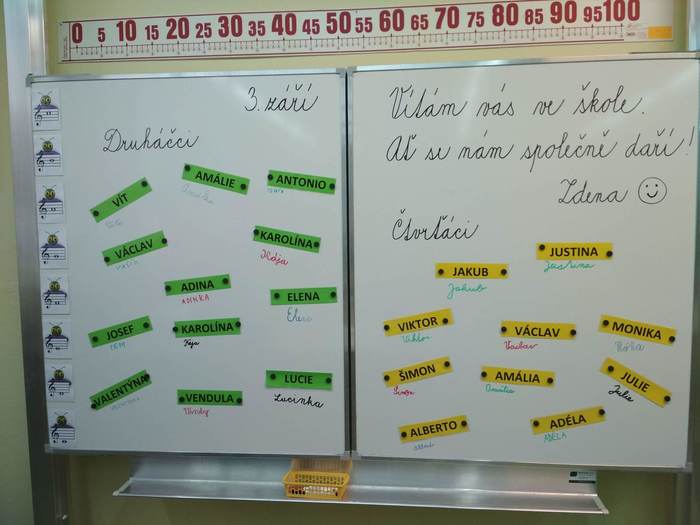 0 5 10 15 20 25 30 35 40 45 50 55 60 65 70 75 80 85 90 95 100
3. září
Druháčci
VÍT
AMÁLIE
ANTONIO
VÁCLAV
KAROLÍNA
Kája
ADINA
ADINKA
ELENA
JOSEF
KAROLÍNA
Kája
VALENTÝNA
VENDULA
Vendy
LUCIE
Lucinka
Vítám vás ve škole.
Ať se nám společně daří!
Zdena
Čtvrťáci
JAKUB
Jakub
JUSTINA
Justina
VIKTOR
Viktor
VÁCLAV
Vaclav
MONIKA
ŠIMON
Šimon
AMÁLIA
Amália
JULIE
Julie
ALBERTO
ADÉLA
ADÉLA